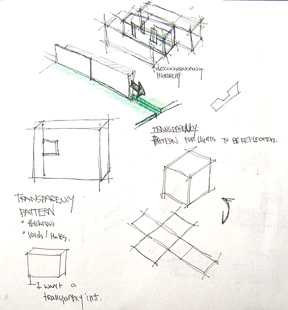 TRANSPARENCY
PATTERN FOR LIGHTS TO BE REFLECTED.
TRANSPARENCY
PATTERN
• thickness
• voids / holes.
I want a
transparency int.